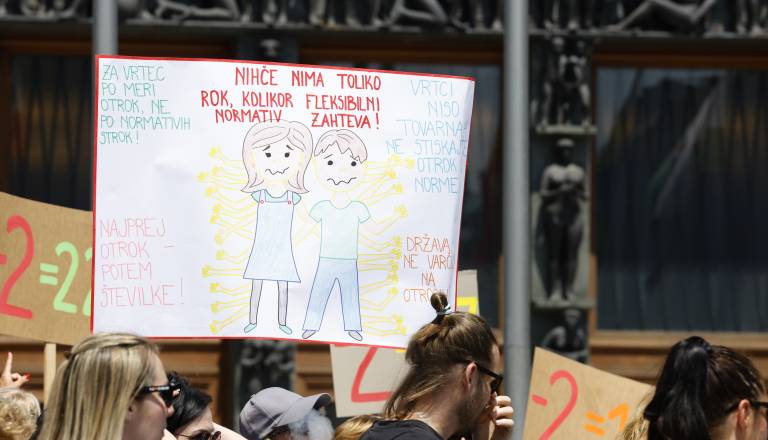 ZA VRTEC
PO MERI
OTROK, NE
PO NORMATIVIH
STROK!
NIHČE NIMA TOLIKO
ROK, KOLIKOR FLEKSIBILNI
NORMATIV ZAHTEVA!
VRTCI
NISO
TOVARNA!
NE STISKAJTE
OTROK V
NORME
NAJPREJ
OTROK -
POTEM
ŠTEVILKE!
DRŽAVA
NE VARČ
NA
-2=22
2
-2=1